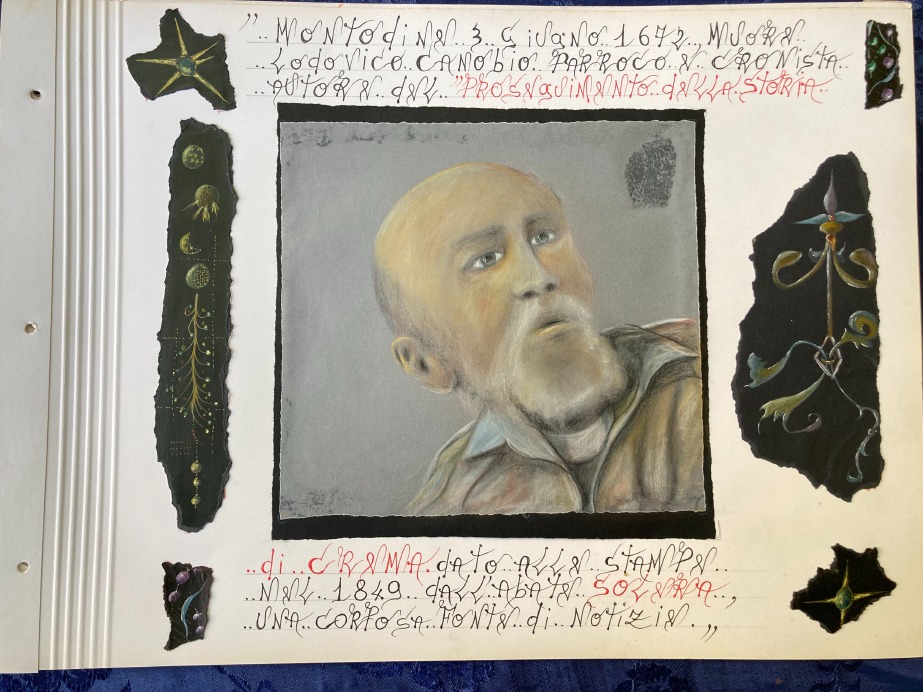 ” MONTOdiNE 3 GiUGNO 1672 MUORE
LOdOViCO CANObiO PARROCO E CRONiSTA
AUTORE dEL "PROSEGUiMENTO dELLA STORiA
di CREMA dATO ALLE STAMPE
NEL 1849 dALL'AbATE SOLERA,
UNA CORPOSA FONTE di NOTiZiE „